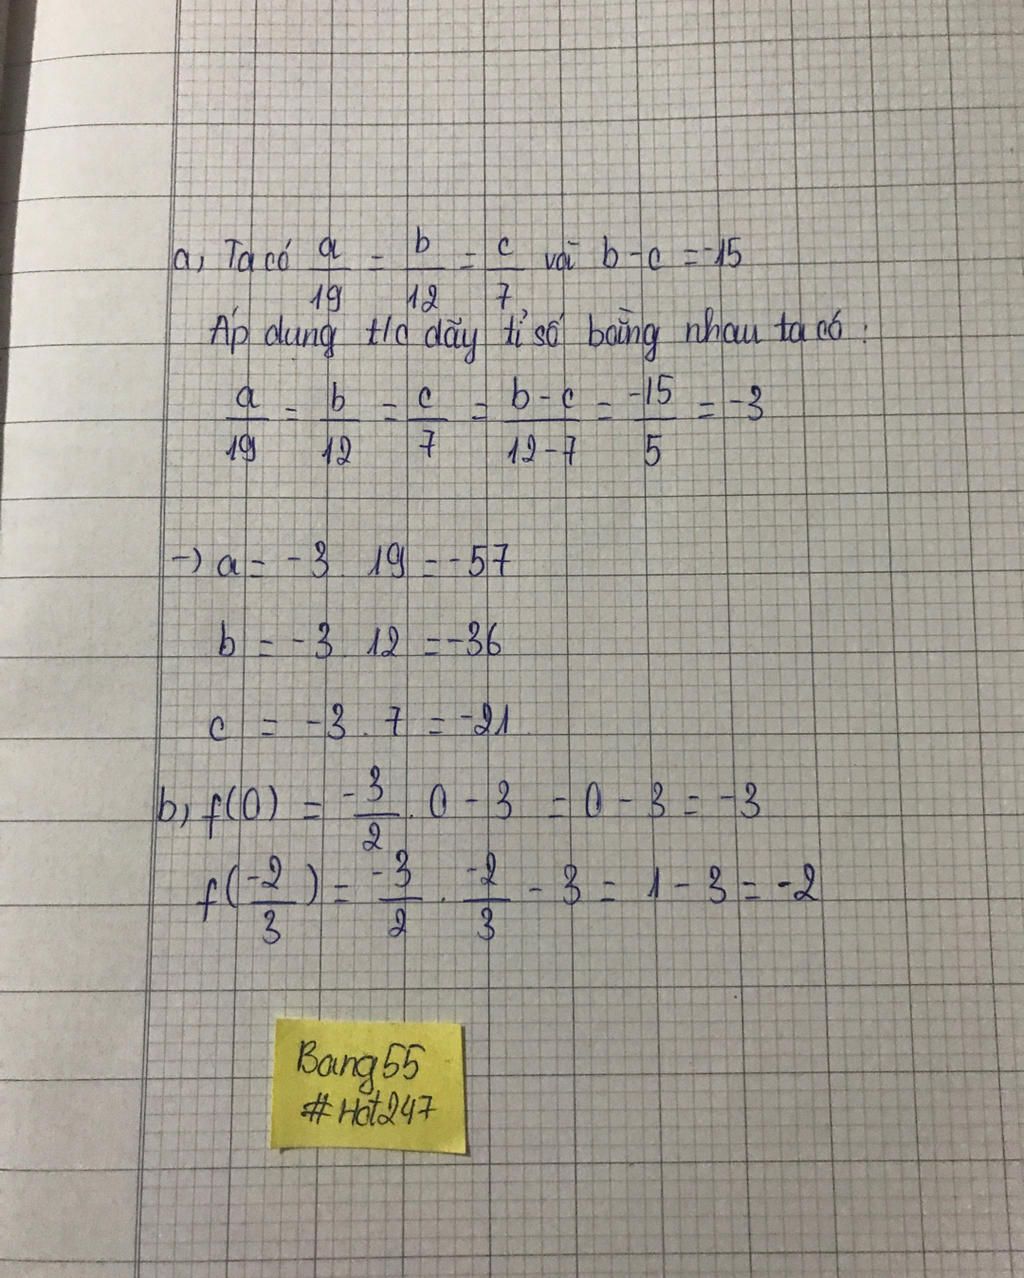 a, Ta có a/19 = b/12 = c/7 với b - c = -15
Áp dung t/c dãy tỉ số bằng nhau ta có :
a/19 = b/12 = c/7 = b - c/12 - 7 = -15/5 = -3
-) a = -3 . 19 = -57
b = -3 . 12 = -36
c = -3 . 7 = -21
b, f(0) = -3/2 . 0 - 3 = 0 - 3 = -3
f(-2/3) = -3/2 . -2/3 - 3 = 1 - 3 = -2
Bang55
#Hot247